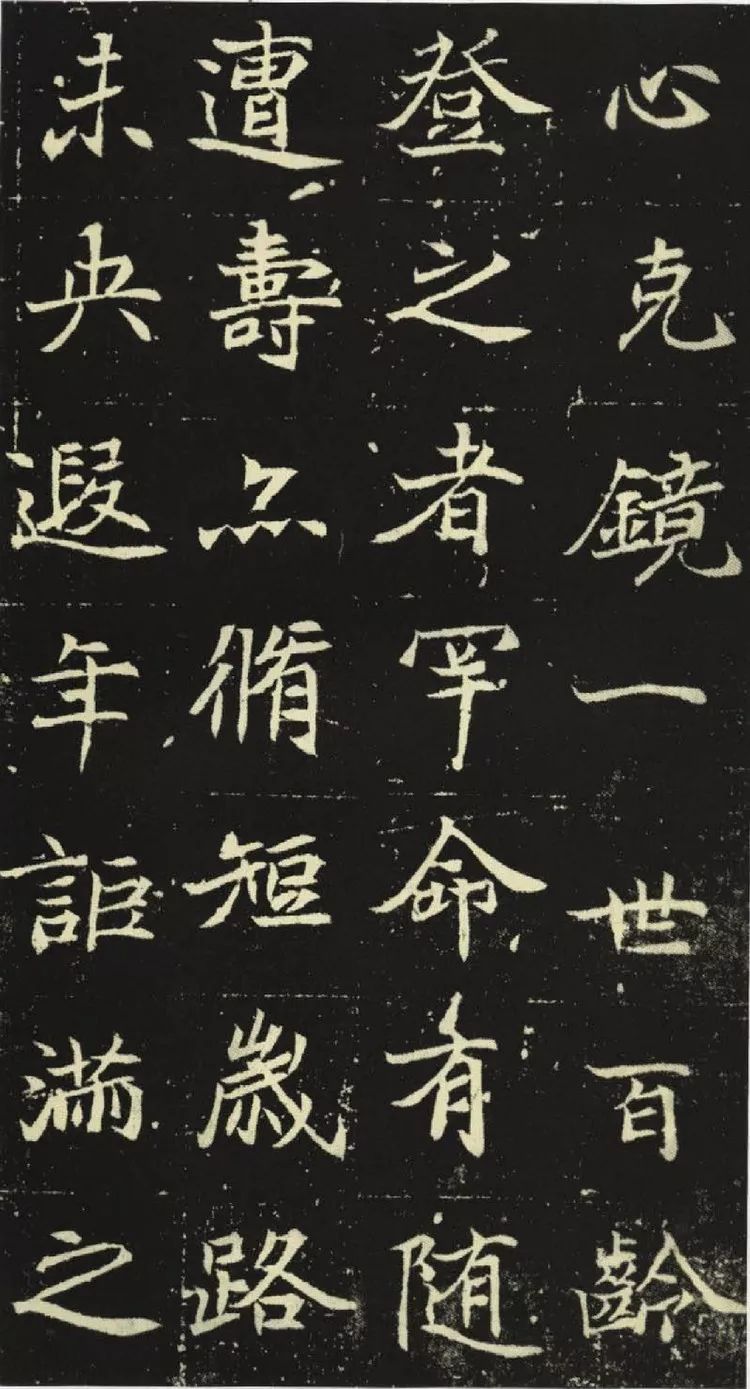 心克鏡一世百齡
登之者罕命有随
遭壽亦脩短歲路
未央遐年詎滿之